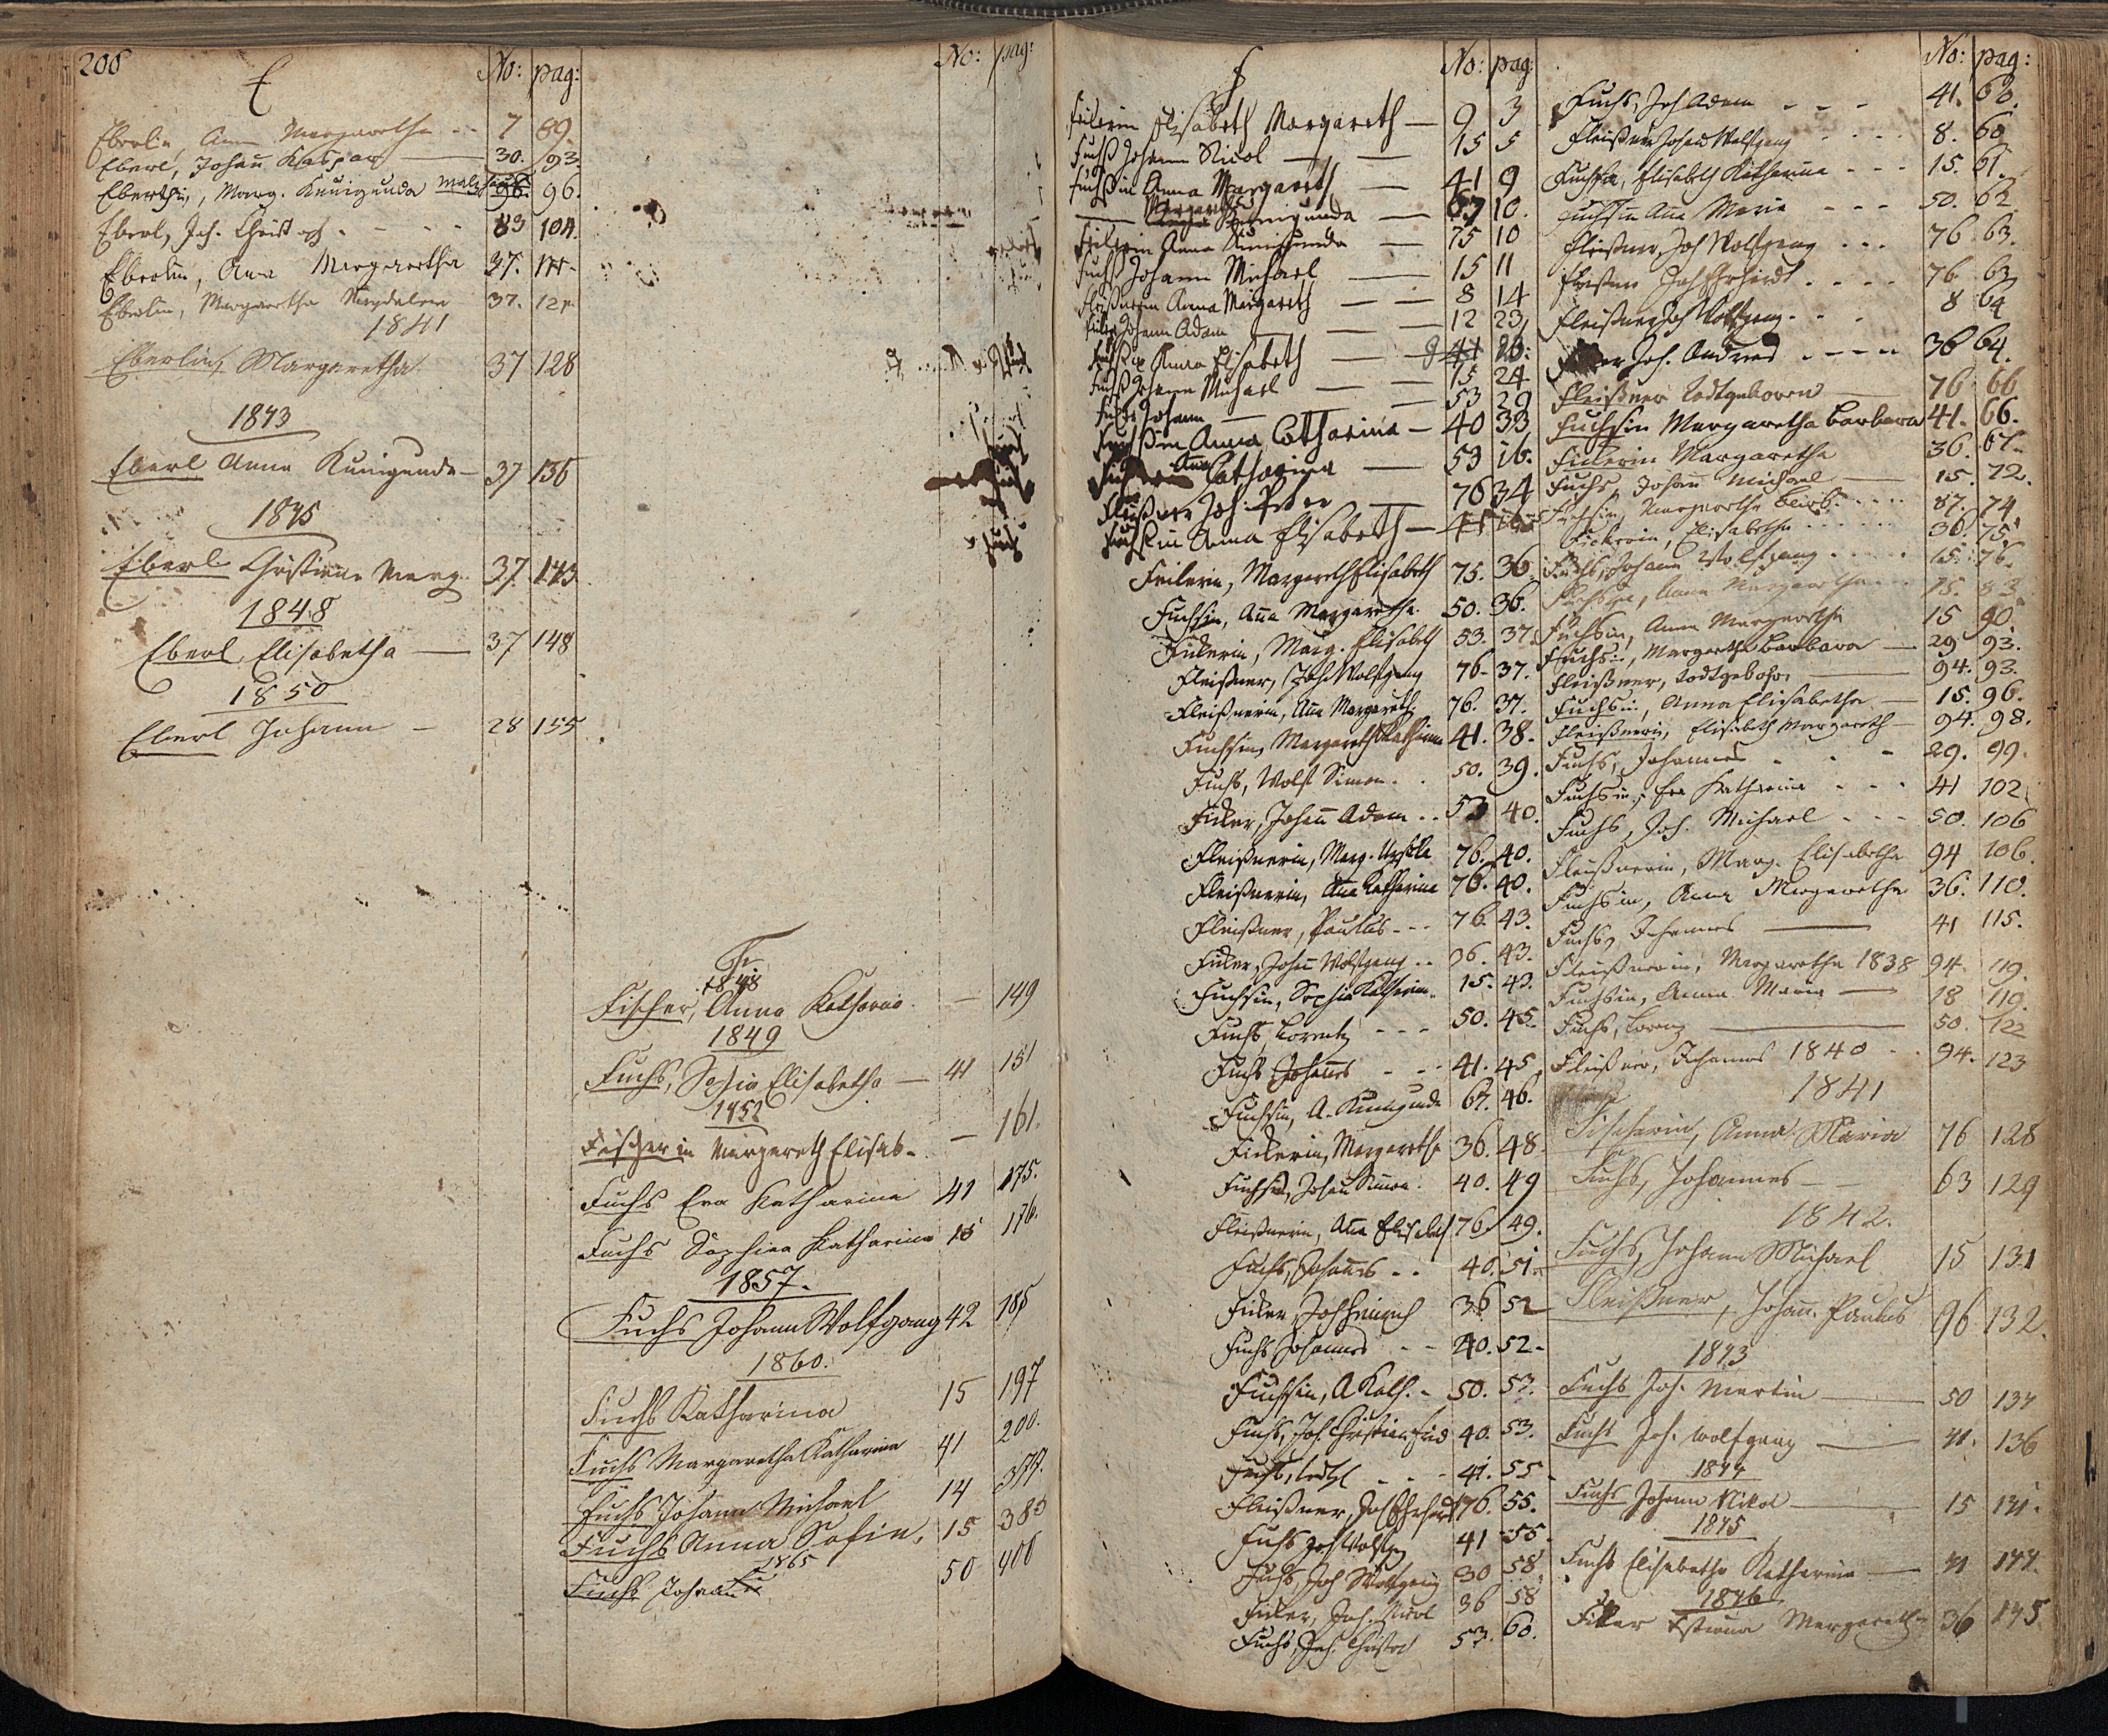 206
E No: pag:
Eberlin, Anna Margaretha - - 7 89.
Eberl, Johañ Kaspar 30. 93.
Eberlin, Marg. Kunigunda 96.
Eberl, Joh. Christoph - - - 83 104
Eberlin, Anna Margaretha 37.
Eberlin, Margaretha Magdalena 37. 121.
1841
Eberlin, Margaretha. 37 128
1843
Eberl Anna Kunigunda - 37 136
1845
Eberl Christiana Marg. 37. 143
1848
Eberl, Elisabetha — 37 148
1850
Eberl Johann - 28 155
No: pag:
F.
1848
Fischer, Anna Katharina. — 149
1849
Fuchs, Sophia Elisabetha — 41 151
1852
Fischerin Margareth Elisab. — 161.
Fuchs Eva Katharina 41 175.
Fuchs Sophia Katharina 15 176.
1857.
Fuchs Johann Wolfgang 42 185
1860.
Fuchs Katharina 15 197
Fuchs Margaretha Katharina 41 200.
Fuchs Johann Michael 14 377.
Fuchs Anna Sofia. 15 383
1865
Fuchs Johann 50 400
F No: pag:
Feilerin Elisabeth Margareth — 9 3
Fuchß Johann Nicol — — 15 5
Fuchßin Anna Margareth — 41 9
Kunigunda — 67 10.
Feilerin Anna Kunigunda — 75 10
Fuchß Johann Michael — 15 11
Fleißnerin Anna Margareth — — 8 14
Johann Adam — 12 23
Fuchßin Anna Elisabeth —
Fuchß Johann Michael — — 15 24
Johann — 53 29
Fuchßin Anna Catharina — 40 33
Anna Catharina — 53
Fleißner Joh. Peter — 76 34
Fuchßin Anna Elisabeth —
Feilerin, Margareth Elisabeth 75. 36.
Fuchsin, Aña Margaretha. 50. 36.
Fickerin, Marg. Elisabeth 53. 37.
Fleißner, Joh. Wolfgang 76. 37.
Fleißnerin, Aña Margareth 76. 37.
Fuchsin, Margareth Katharina 41. 38.
Fuchs, Wolf Simon . . 50. 39.
Ficker, Johañ Adam . . 53 40.
Fleißnerin, Marg. Ursula 76. 40.
Fleißnerin, Aña Katharina 76. 40.
Fleißner, Paulus - - - 76. 43.
Ficker, Johañ Wolfgang . . 36. 43.
Fuchsin, Sophia Katharin. 15. 43.
Fuchs, Lorentz - - - 50. 45.
Fuchs Johañes - - - 41. 45
Fuchsin, A. Kunigunda 67. 46.
Fickerin, Margareth 36. 48.
Fuchs, Johañ Simon. 40. 49
Fleißnerin, Aña Elisabeth 76 49.
Fuchs, Johañes . . 40. 51.
Ficker, Joh Heinrich 36 52
Fuchs Johannes - - 40. 52.
Fuchsin, A Kath. - 50. 53.
Fuchs, Joh. Christian Fried 40. 53.
Fuchs, - - - 41. 55
Fleißner, Joh Erhardt 76. 55.
Fuchs Joh Wolfg 41 55.
Fuchs, Joh Wolfgang 30 58.
Ficker, Joh. Nicol 36 58
Fuchs, Joh. Christof 53. 60.
No: pag:
Fuchs, Joh Adam - - - 41. 60.
Fleißner Johañ Wolfgang - - - 8. 60
Fuchsin, Elisabeth Katharina - - - 15. 61.
Fuchsin Aña Maria - - - 50. 62.
Fleißner, Joh Wolfgang - - - 76 63.
Fleißner Joh Erhardt - - - - 76 63
Fleißner Joh Wolfgang - - - 8 64
Joh. Andreas - - - - 36 64.
Fleißner Todtgeboren — 76 66
Fuchsin Margaretha Barbara 41. 66.
Fickerin Margaretha 36. 67.
Fuchs, Johañ Michael — 15. 72.
Fuchsin, Margaretha Barb. - - - 87. 74.
Fickerin, Elisabetha - - - - 36. 75.
Fuchs, Johann Wolfgang - - - - 15. 76.
Fuchsin, Anna Margaretha - - 15. 83.
Fuchsin, Anna Margaretha 15 90.
Fuchsin, Margaretha Barbara — 29 93.
Fleißner, todtgebohrn — 94. 93.
Fuchsin, Anna Elisabetha — 15. 96.
Fleißnerin, Elisabeth Margareth — 94. 98.
Fuchs, Johannes - - - 29. 99.
Fuchsin, Eva Katharina - - - 41 102.
Fuchs, Joh. Michael - - - 50. 106
Fleißnerin, Marg. Elisabetha 94 106.
Fuchsin, Anna Margaretha 36. 110.
Fuchs, Johannes — 41 115.
Fleißnerin, Margaretha 1838 94. 119.
Fuchsin, Anna Maria — 18 119.
Fuchs, Lorenz — 50. 122
Fleißner, Johannes 1840 - - 94. 123
1841
Fischerin, Anna Maria 76 128
Fuchs, Johannes — 63 129
1842.
Fuchs, Johann Michael 15 131
Fleißner, Johañ Paulus 96 132.
1843
Fuchs Joh. Martin — 50 134
Fuchs Joh. Wolfgang — 41. 136
1844
Fuchs Johann Nikol — 15
1845
Fuchs Elisabetha Katharina — 41 144.
1846
Ficker Margaretha 36 145.